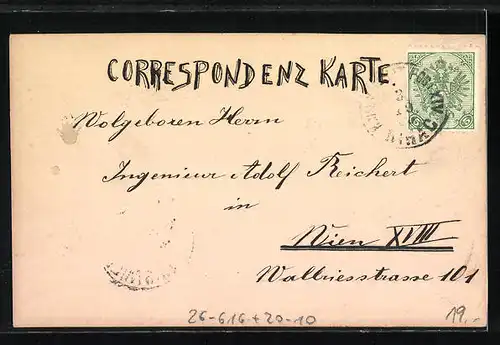 CORRESPONDENZ KARTE.
Wolgeboren Herrn
Ingenieur Adolf Reichert
in
Wien XVIII
Walriesstrasse 101
26-616+20-10
19.-
5 5